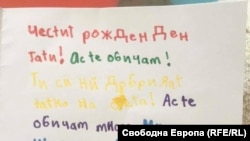 Честит рожден Ден
тати! Асте обичам!
Ти си ни добрият
татко на Асте
обичам мно
Свободна Европа (RFE/RL)